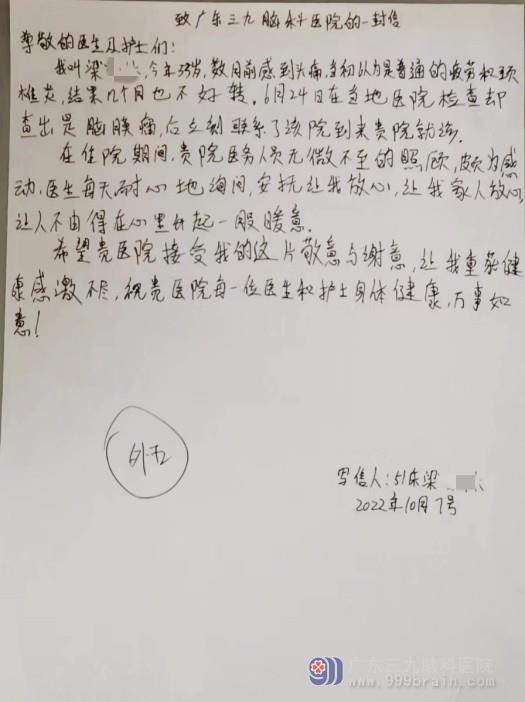 致广东三九脑科医院的一封信
尊敬的医生及护士们：
我叫梁 今年35岁，数月前感到头痛，当初以为是普通的疲劳和颈
椎炎，结果几个月也不好转。6月24日在当地医院检查却
查出是脑膜瘤，后立刻联系了该院到来贵院就诊。
在住院期间，贵院医务人员无微不至的照顾，颇为感
动，医生每天耐心地询问，安抚让我放心，让我家人放心，
让人不由得在心里升起一股暖意。
希望贵医院接受我的这片敬意与谢意，让我重获健
康感激不尽，祝贵医院每一位医生和护士身体健康，万事如
意！
外五
写信人：51床梁
2022年10月7号
广东三九脑科医院
www.999brain.com